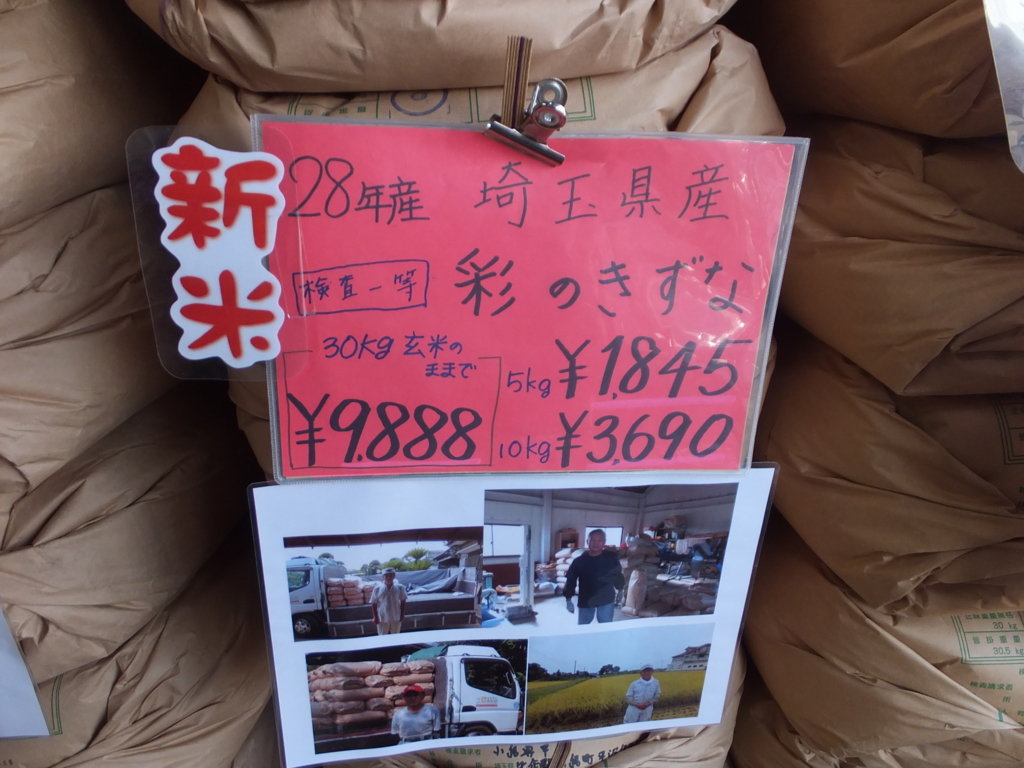 新米
28年産 埼玉県産
検査一等 彩のきずな
30kg 玄米の
ままで
5kg ¥1,845
¥9,888
10kg ¥3,690
30 kg
30.5 kg